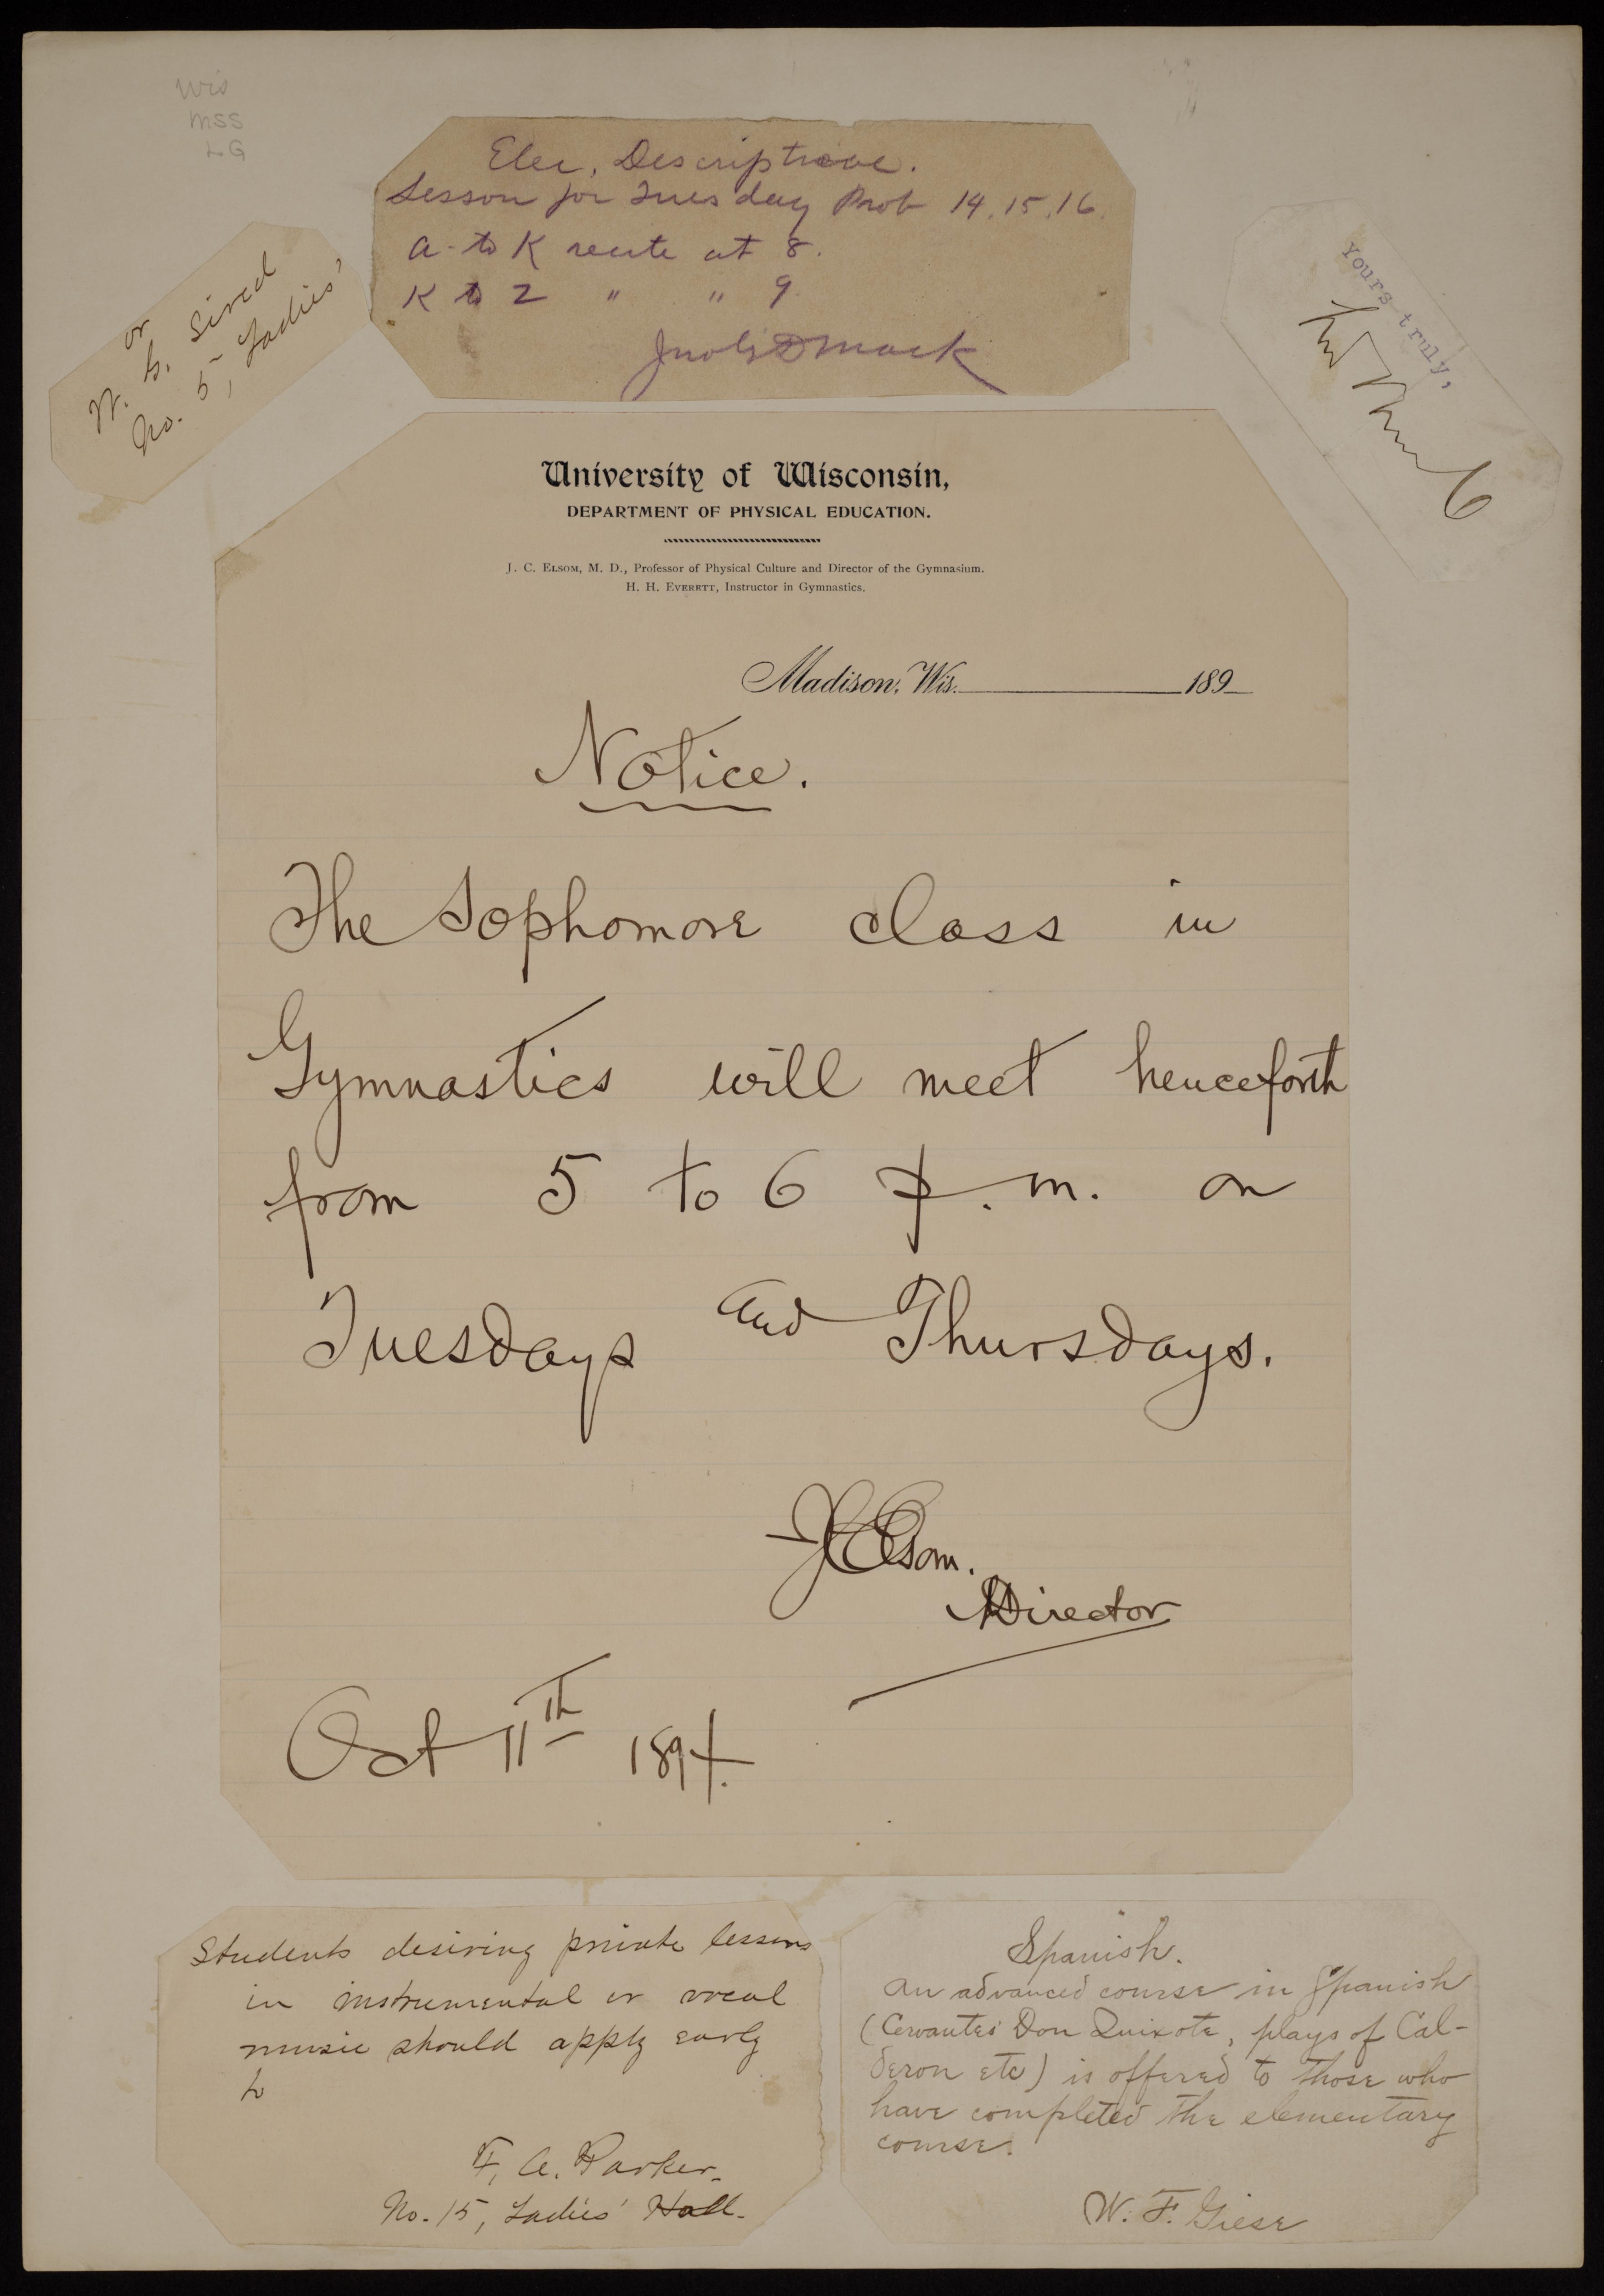 Wis
mss
LG
Elec. Descriptive.
Lesson for Tuesday Prob 14, 15, 16.
A to K recite at 8.
K to Z " " 9.
Jno G D Mack
or
W. b. sired
No. 5, Ladies'
Yours truly,
University of Wisconsin,
DEPARTMENT OF PHYSICAL EDUCATION.
J. C. ELSOM, M. D., Professor of Physical Culture and Director of the Gymnasium.
H. H. EVERETT, Instructor in Gymnastics.
Madison, Wis. 189
Notice.
The Sophomore class in
Gymnastics will meet henceforth
from 5 to 6 p.m. on
Tuesdays and Thursdays.
JC Elsom.
Director
Oct 11th 1894.
Students desiring private lessons
in instrumental or vocal
music should apply early
to
F. A. Parker.
No. 15, Ladies' Hall.
Spanish.
An advanced course in Spanish
(Cervantes' Don Quixote, plays of Cal-
deron etc) is offered to those who
have completed the elementary
course.
W. F. Giese